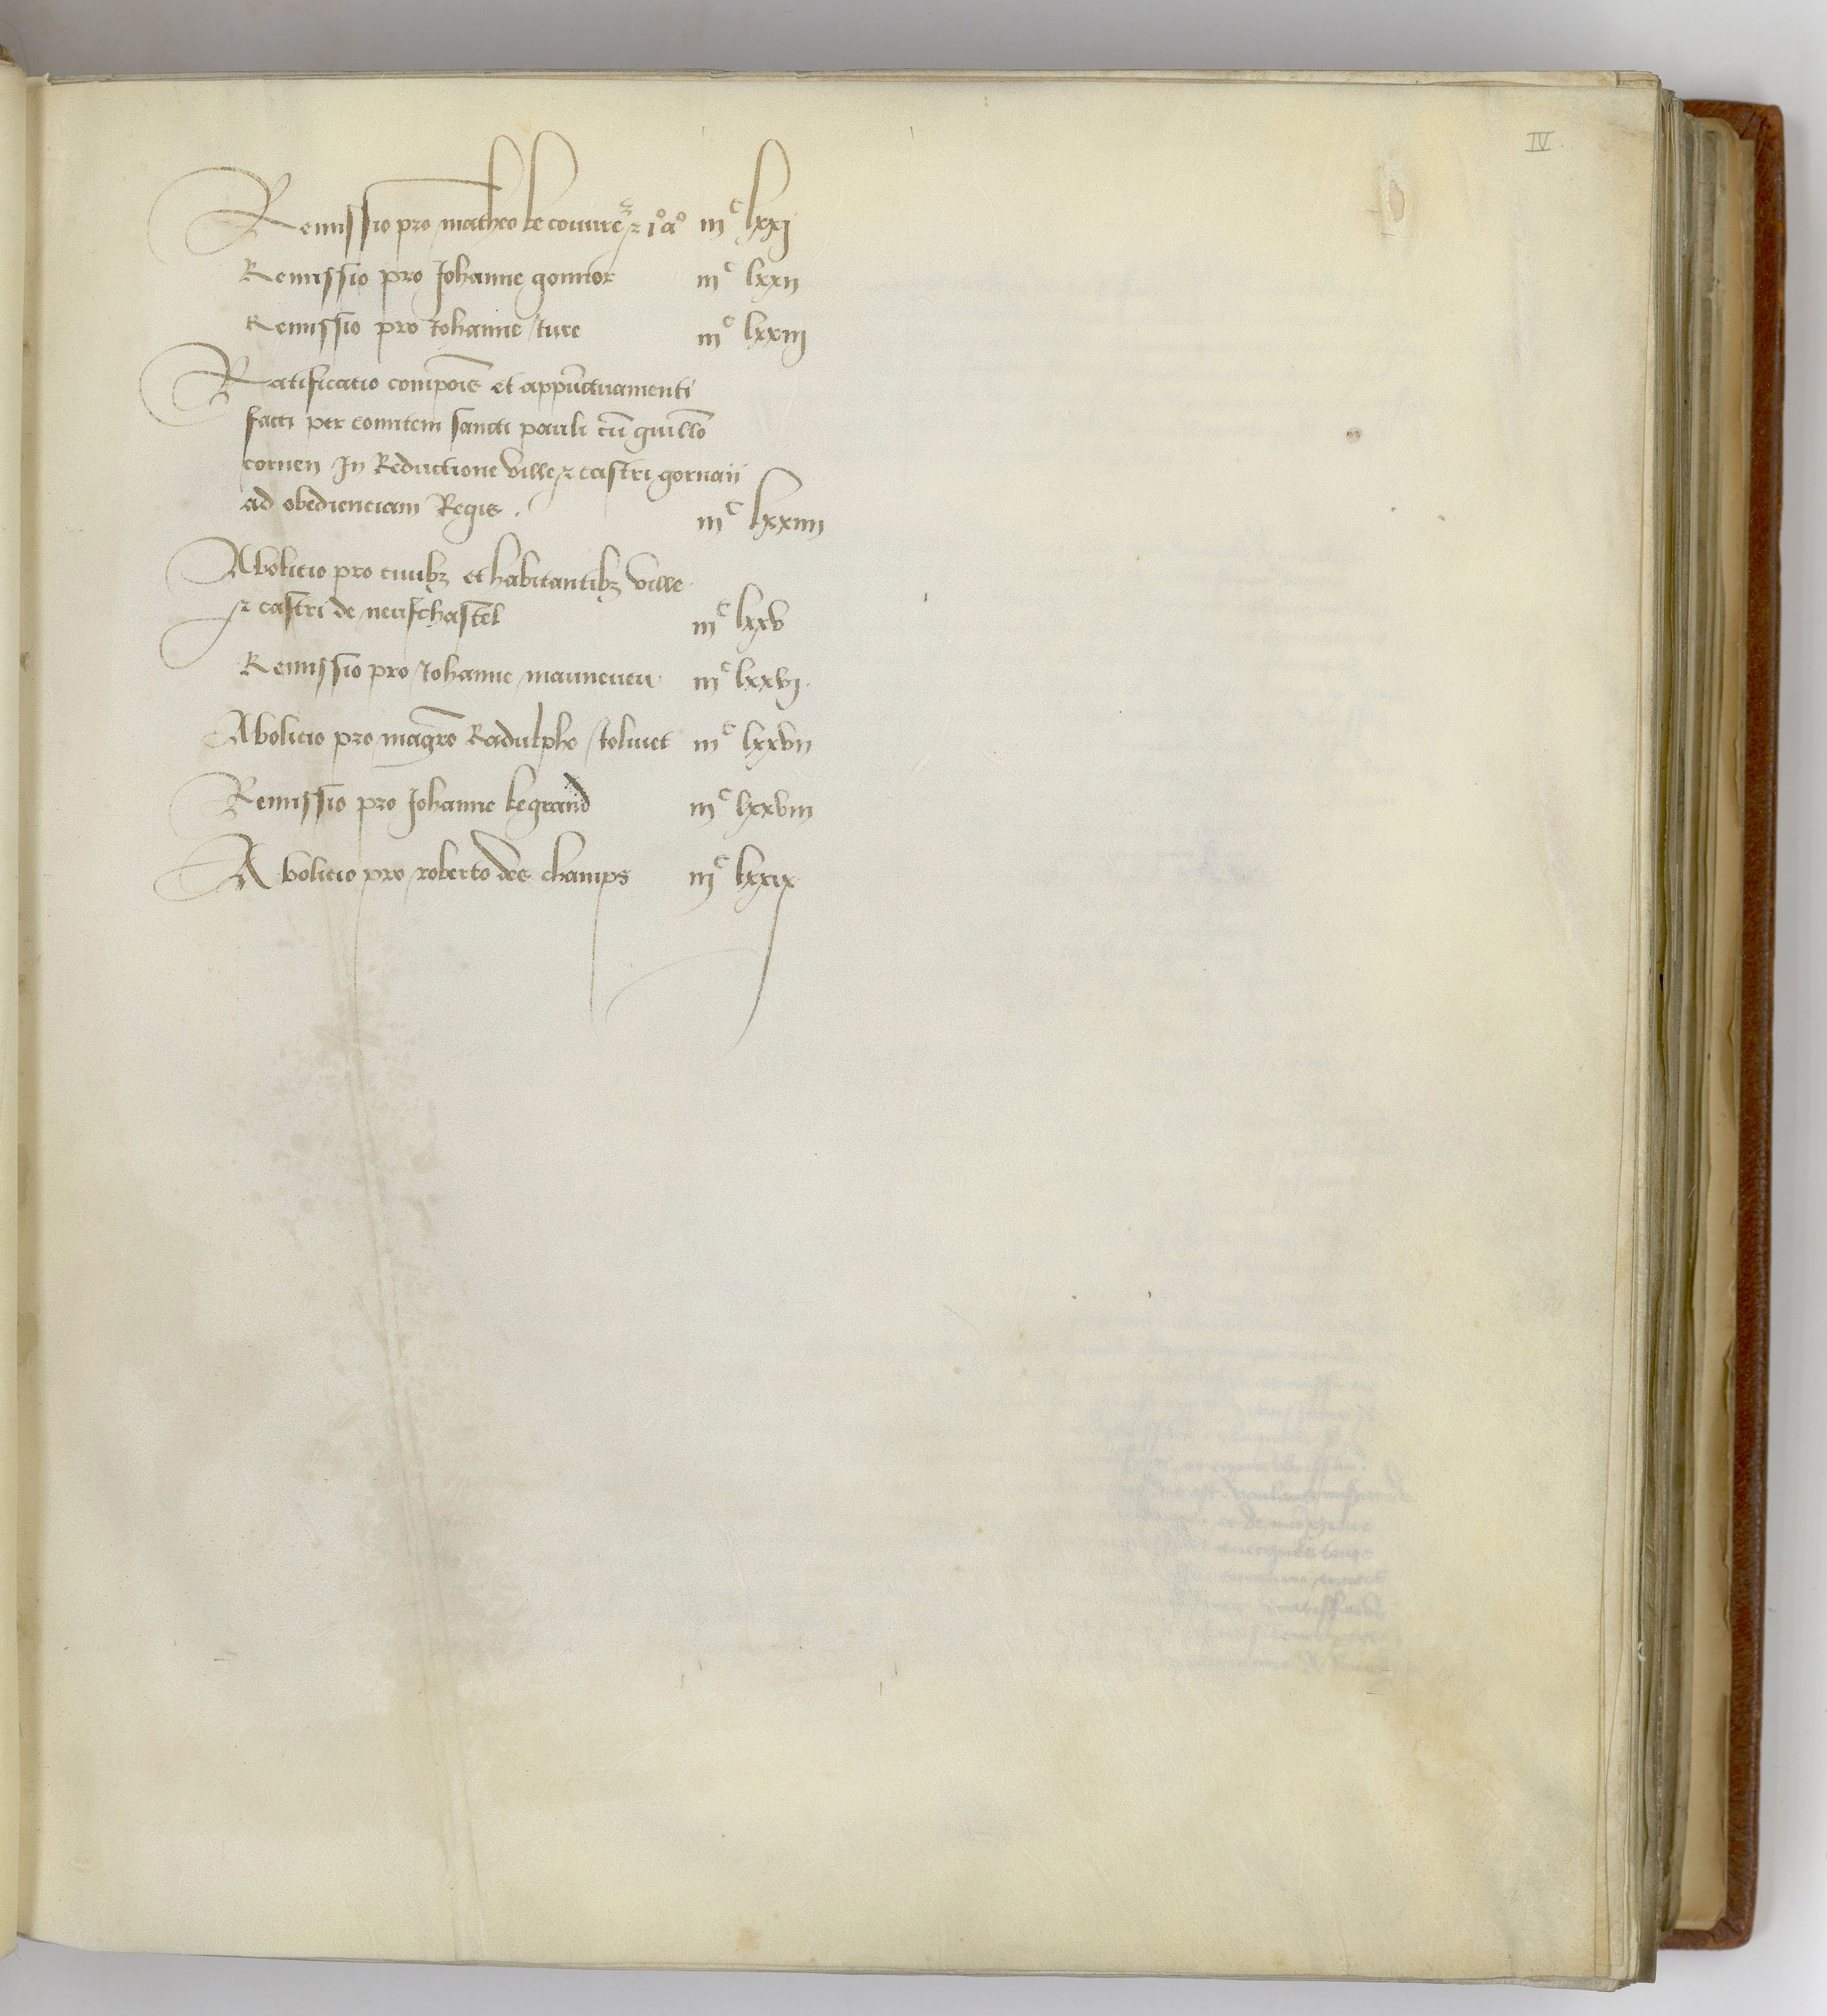 IV
Remissio pro matheo le couure ⁊ i° a° iiiᶜ lxxi
Remissio pro Johanne gonnor iiiᶜ lxxii
Remissio pro Johanne Iure iiiᶜ lxxiii
Ratificatio compoīs et appūctuamenti
facti per comitem sancti pauli cū guill̄o
cornen In Reductione ville ⁊ castri gornaii
ad obedienciam Regis . iiiᶜ lxxiiii
Abolicio pro ciuibꝫ et habitantibꝫ ville
⁊ castri de neufchastel iiiᶜ lxxv
Remissio pro Johanne mauneueu iiiᶜ lxxvi
Abolicio pro magr̄o Radulpho Joliuet iiiᶜ lxxvii
Remissio pro Johanne legrand iiiᶜ lxxviii
Abolicio pro roberto des champs iiiᶜ lxxix